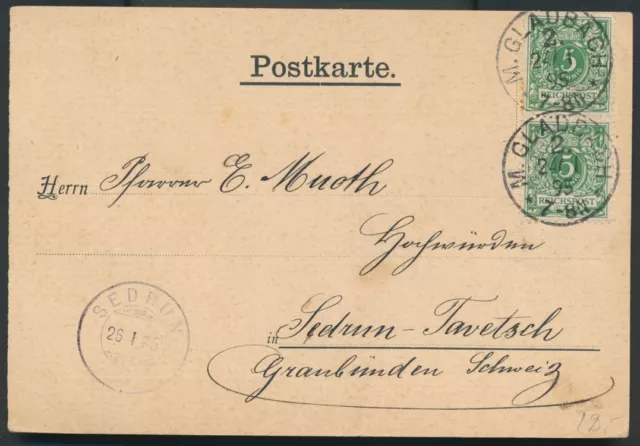 Postkarte.
M. GLADBACH
2.
95
* 7-8N.
5
REICHSPOST
M. GLADBACH
2.
95
* 7-8N.
5
REICHSPOST
Herrn Pfarrer E. Muoth
Hochwürden
in Sedrun-Tavetsch
Graubünden Schweiz
SEDRUN
26 I 95
12.-